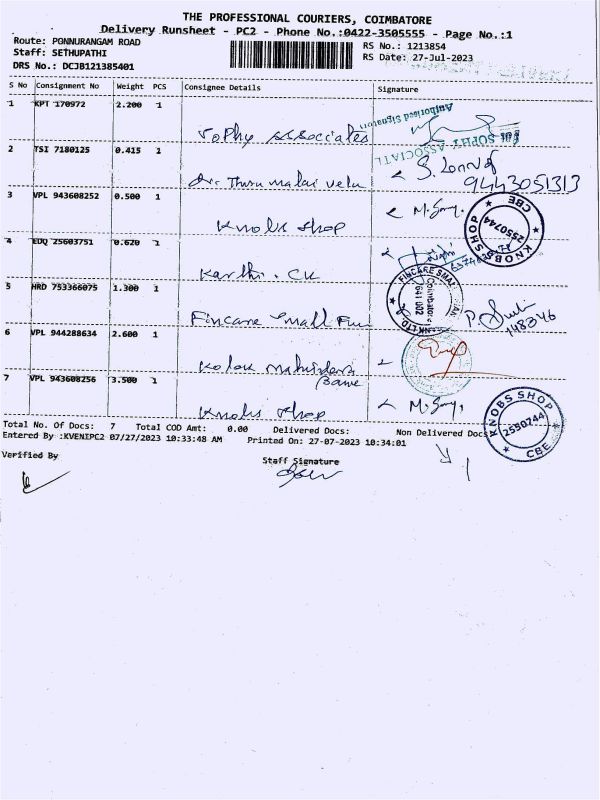 THE PROFESSIONAL COURIERS, COIMBATORE
Delivery Runsheet - PC2 - Phone No.:0422-3505555 - Page No.:1
Route: PONNURANGAM ROAD
RS No.: 1213854
Staff: SETHUPATHI
RS Date: 27-Jul-2023
DRS No.: DCJB121385401
S No Consignment No Weight PCS Consignee Details Signature
1 KPT 170972 2.200 1
Sophy Associates
Authorised Signatory
2 TSI 7180125 0.415 1
Dr. Thirumalai velu
9443051313
3 VPL 943608252 0.500 1
Knobs Shop
M.Samy.
KNOBS SHOP 2550744 CBE
4 EDQ 25603751 0.620 1
Karthi. CK
5 HRD 753366075 1.300 1
Fincare Small Fin
148346
6 VPL 944288634 2.600 1
Kotak Mahindara
Bank
7 VPL 943608256 3.500 1
Knobs Shop
M.Samy,
KNOBS SHOP 2550744 CBE
Total No. Of Docs: 7 Total COD Amt: 0.00 Delivered Docs: Non Delivered Docs
Entered By :KVENIPC2 07/27/2023 10:33:48 AM Printed On: 27-07-2023 10:34:01
Verified By
Staff Signature